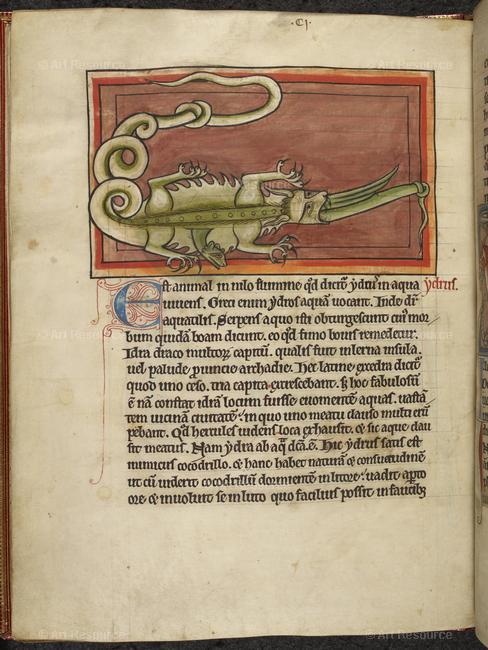 ·CI·
Est animal in nilo flumine qd dicit ydrus in aqua ydrus.
uiuens. Greci enim ydros aquam uocant. Inde dr
aquatilis. Serpens a quo icti obturgescunt cui mor
bum quidam boam dicunt. eo qd fimo bouis remedetur.
Idra draco multorum capitum. qualis fuit in lerna insula.
uel palude prouincie archadie. Hec latine excedra dicit
quod uno ceso. tria capita excrescebant. sz hoc fabulosu
e nam constat idram locum fuisse euomentem aquas. uastan
tem uicinam ciuitatem. in quo uno meatu clauso multi eru
pebant. Qd hercules uidens loca exhausit. et sic aque clau
sit meatus. Nam ydra ab aqua dca e. Hic ydrus satis est
inimicus cocodrillo. et hanc habet naturam et consuetudinem
ut cum uiderit cocodrillum dormientem in litore. uadit aperto
ore et inuoluit se in luto quo facilius possit in faucibz
© Art Resource
© Art Resource
© Art Resource
© Art Resource